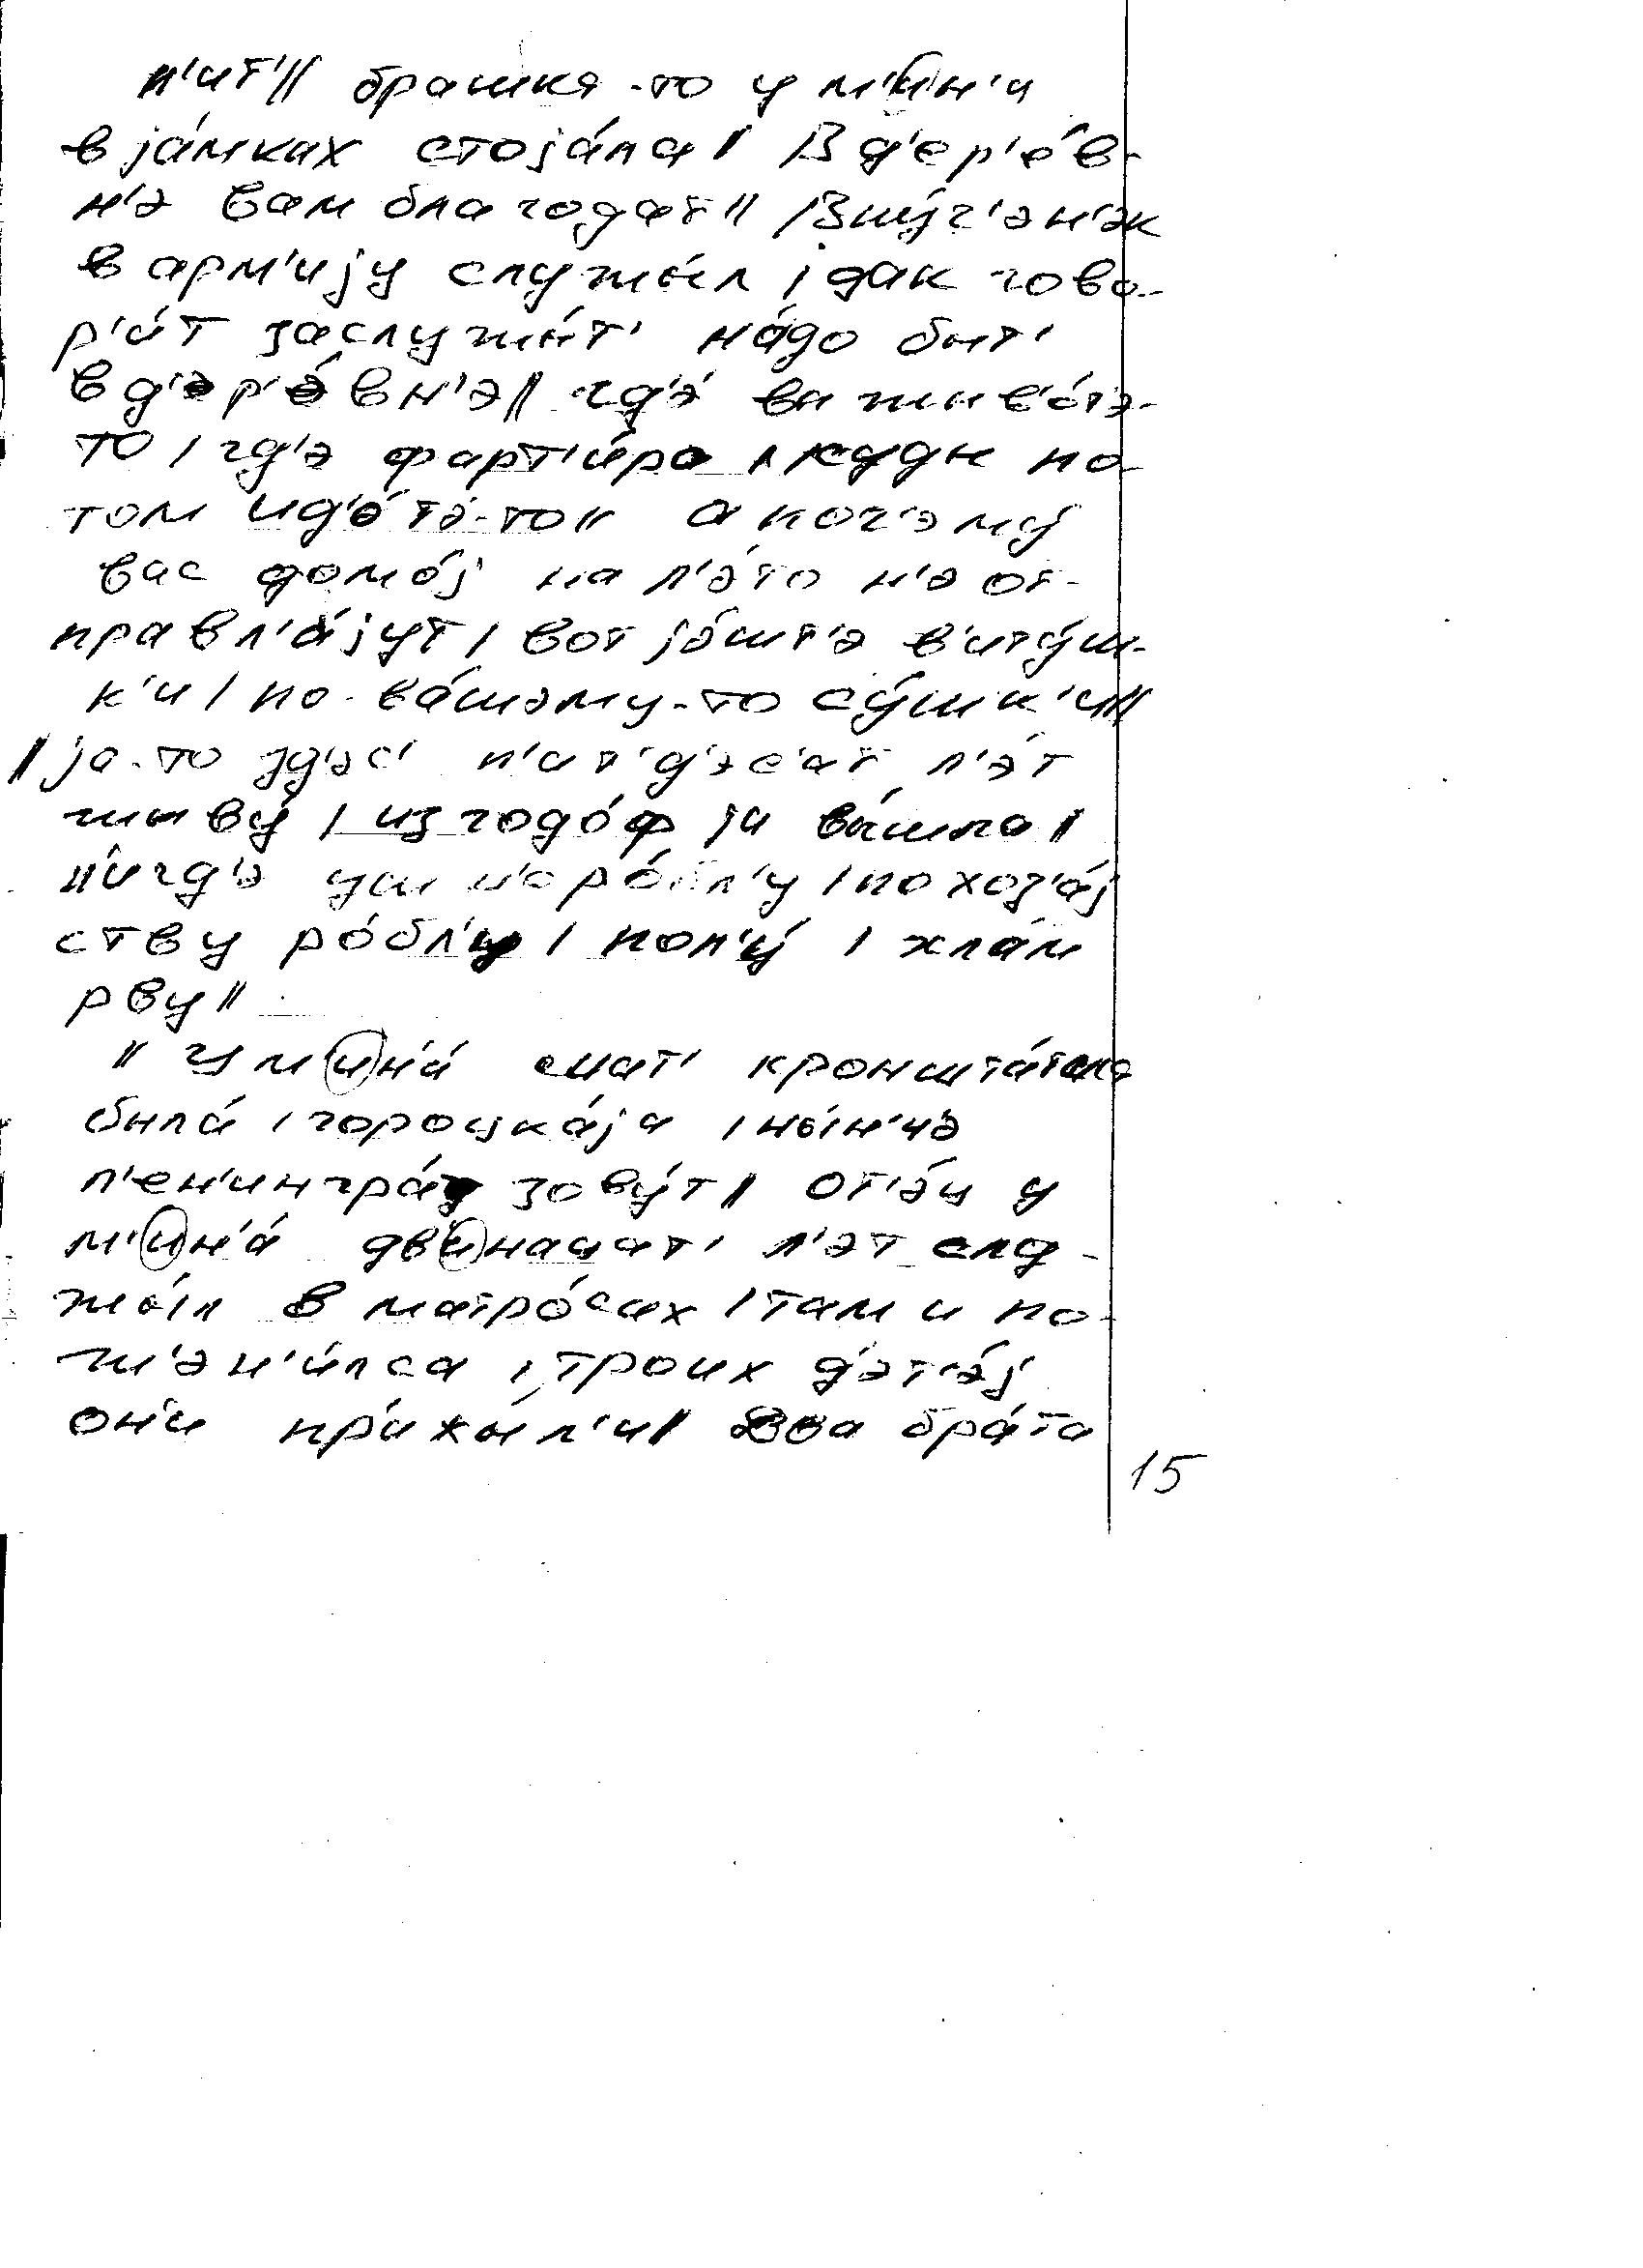 п'ит'// брашка-то у м'ин'и
в ја́мках стоја́ла / /В д'ер'е́в-
н'э вам благодат // /Вну́ч'эн'эк
в арм'ију служы́л / дак гово-
р'и́т заслужы́т' на́до быт'
в д'эр'э́вн'э // гд'э́ вы жыв'о́тэ-
то / гд'э фарт'и́ра / куды по-
том ид'о́тэ-то // а поч'эму́
вас домо́ј на л'э́то н'э от-
правл'а́јут / вот јэ́шт'э в'иту́ш-
к'и / по-ва́шэму-то су́шк'и //
// ја-то зд'эс' п'ат'д'эс'ат л'эт
жыву́ / из годо́ф ја вы́шла //
н'игд'э уш н'э ро́бл'у / по хоз'а́ј
ству ро́бл'у / пол'у́ / хла́м
рву //
// У м'ин'а́ мат' кроншта́тска
была́ / гороцка́ја / ны́н'чэ
л'ен'ингра́д зову́т // От'э́ц у
м'ин'а́ дв'инацат' л'эт слу-
жы́л в матро́сах / там и по-
ж'эн'и́лса / троих д'эт'э́ј
он'и пр'ижы́л'и // Два бра́та
15